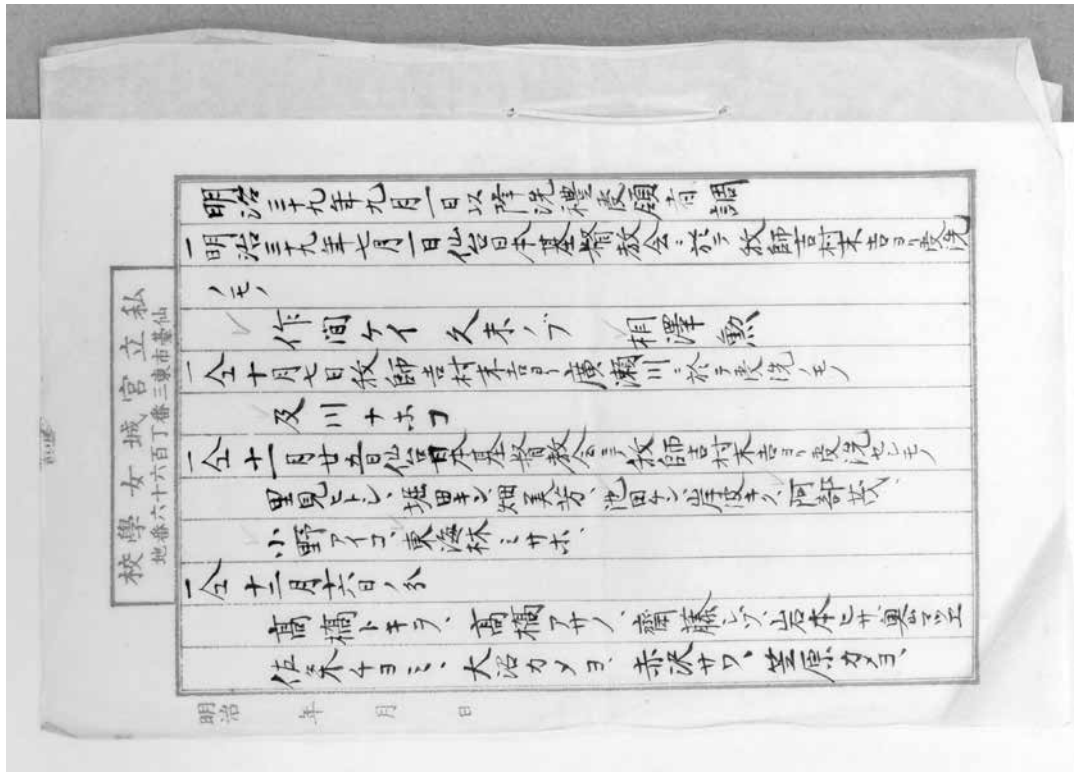 明治三十九年九月一日以降洗禮受領者調
一明治三十九年七月一日仙台日本基督教会ニ於テ牧師吉村末吉ヨリ受洗
ノモノ
作間ケイ 久末ノブ 相澤勲
一仝十月七日牧師吉村末吉ヨリ廣瀬川ニ於テ受洗ノモノ
及川ナホコ
一仝十一月廿五日仙台日本基督教会ニテ牧師吉村末吉ヨリ受洗セシモノ
里見ヒトシ、堀田キン、畑美芳、池田ケン、岸波キク、阿部
小野アイコ、東海林ミサホ、
一仝十二月十六日ノ分
高橋トキヲ、高橋アサノ、齋藤シツ、岩本ヒサ
チヨミ、大沼カメヨ、赤沢サワ、笠原カメヨ、
明治 年 月 日
私立宮城女學校
仙臺市東三番丁百六十六番地